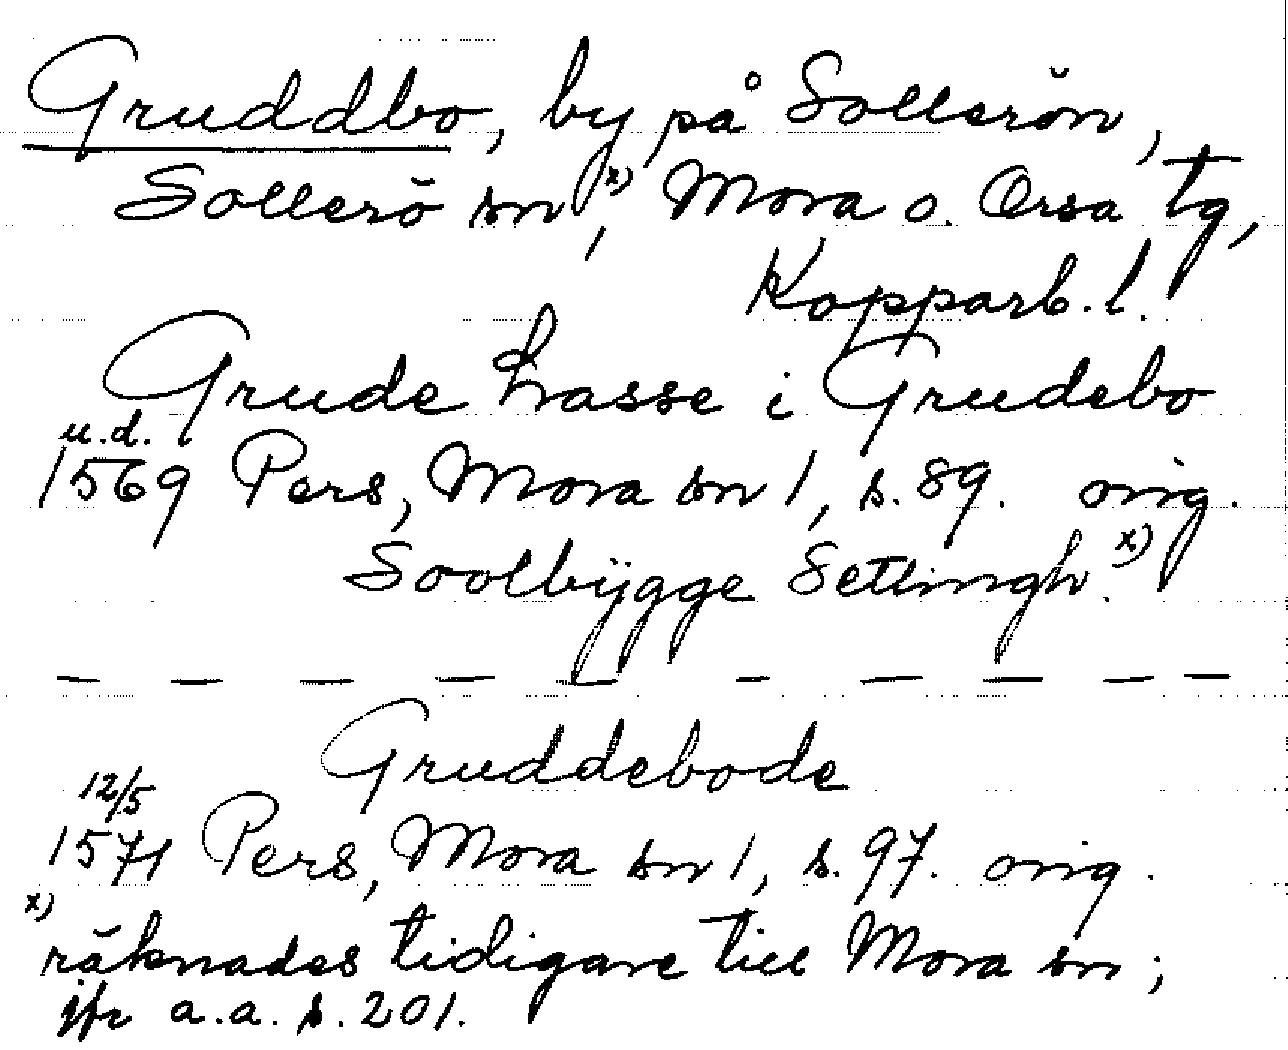 Gruddbo, by på Sollerön,
Sollerö sn x), Mora o. Orsa tg,
Kopparb. l.
Grude hasse i Grudebo
u.d.
1569 Pers, Mora sn 1, s. 89. orig.
Soolbÿgge Settingh. x)
Gruddebode
12/5
1571 Pers, Mora sn 1, s. 97. orig.
x)
räknades tidigare till Mora sn;
jfr a.a. s. 201.